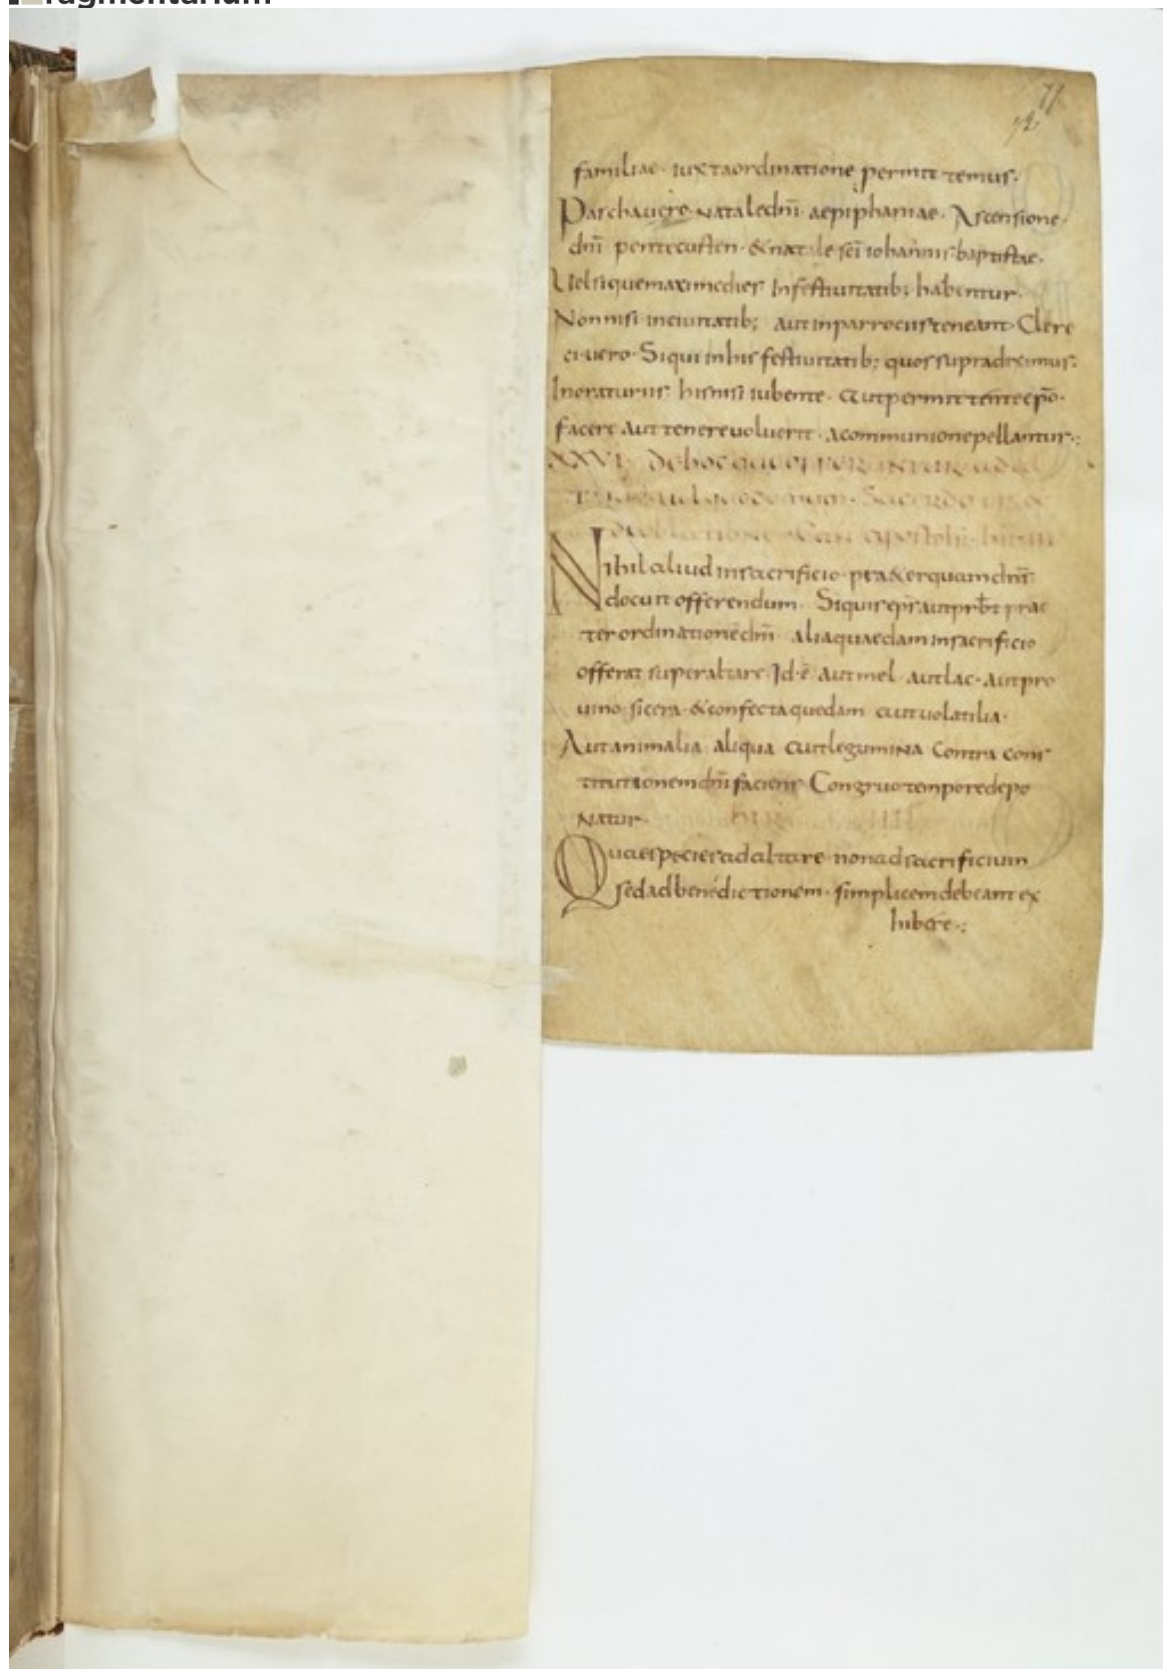 ragmentarium
71
72
familiae · iuxtaordinatione permittemus ·
Paschauero · Nataledn̄i · aepiphaniae · Ascensione ·
dn̄i · pentecosten · & natale sc̄i iohannis baptistae ·
Uelsiquemaximedies Infestiuitatib; habentur ·
Nonnisi inciuitatib; autinparrociisteneant · Clere
ciuero · Siqui inhis festiuitatib; quossupradiximus ·
Inoraturiis hisnisi iubente · autpermittenteep̄o ·
facere aut tenereuoluerit · acommunionepellantur ·:
XXVI · Dehoc
apostoli
Nihil aliud insacrificio · pta&erquamdn̄s
docuit offerendum · Siquisep̄s autprb̄t prae
terordinationēdn̄i · aliaquaedam insacrificio
offerat superaltare · Id · ē autmel · autlac · autpro
uino · sicera · &confectaquedam autuolatilia ·
Autanimalia aliqua autlegumina Contra cons
titutionemdn̄i faciens · Congruotemporedepo
natur ·
Quaespeciesadaltare nonadsacrificium
sedadbenedictionem · simplicemdebeant ex
hibere ·: